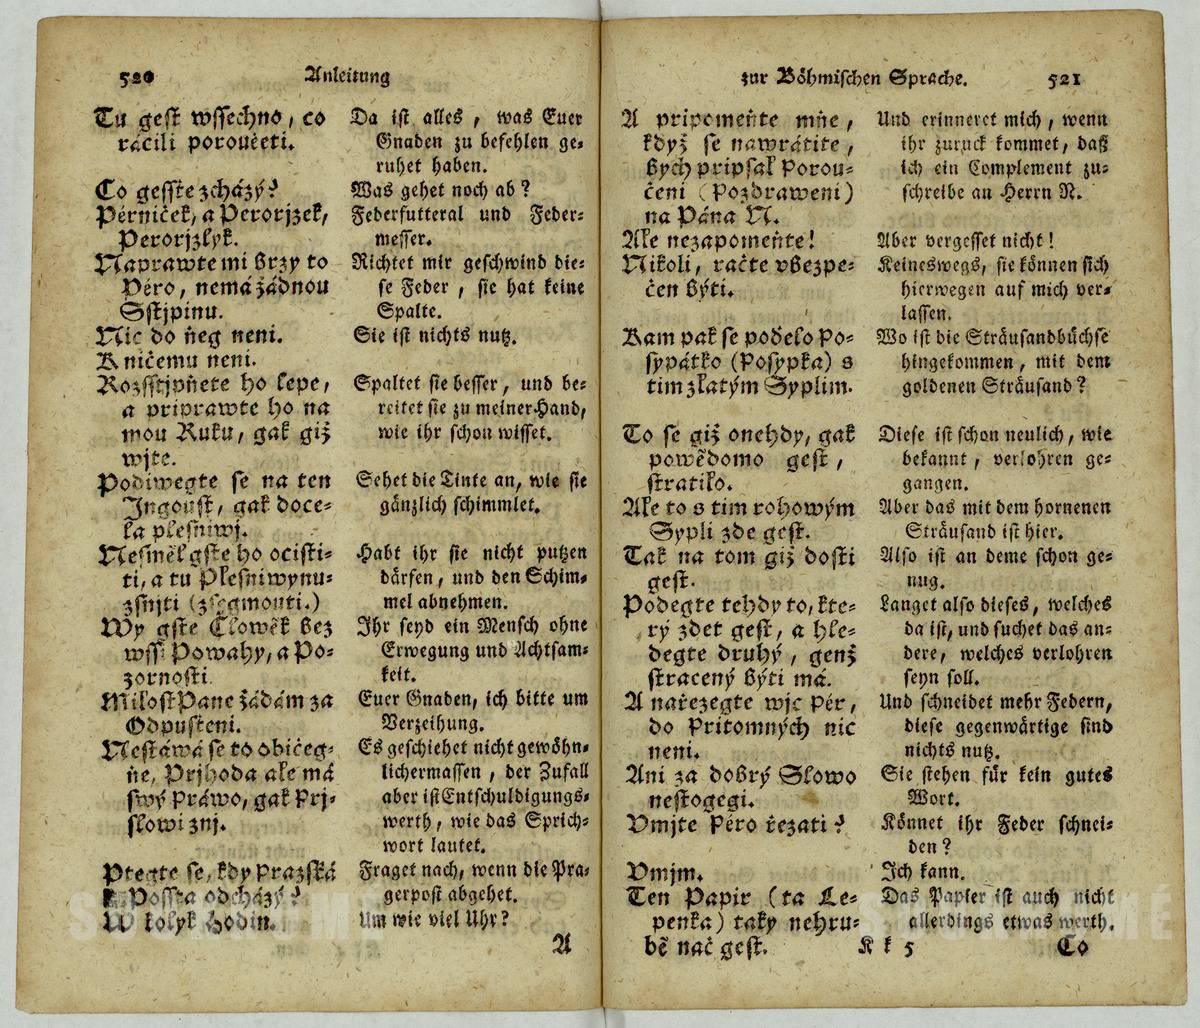 520 Anleitung
Tu gest wssechno, co
ráčili poroučeti.
Co gesste zcházý?
Pérniček, a Perorjzek,
Perorjzlyk.
Naprawte mi brzy to
Péro, nemá žádnou
Sstjpinu.
Nic do ňeg neni.
K ničemu neni.
Rozsstjpňete ho lepe,
a priprawte ho na
mou Ruku, gak giž
wjte.
Podiwegte se na ten
Jngoust, gak doce-
la plesniwj.
Nesměl gste ho ocisti-
ti, a tu Plesniwynu-
zsnjti (zsegmouti.)
Wy gste Clowěk bez
wssi Powahy, a Po-
zornosti.
Milost Pane žádám za
Odpusteni.
Nestáwá se to običeg-
ňe, Prjhoda ale má
swý Práwo, gak Prj-
slowi znj.
Ptegte se, kdy Prazská
Possta odcházý?
W kolyk Hodin.
Da ist alles, was Euer
Gnaden zu befehlen ge-
ruhet haben.
Was gehet noch ab?
Federfutteral und Feder-
messer.
Richtet mir geschwind die-
se Feder, sie hat keine
Spalte.
Sie ist nichts nutz.
Spaltet sie besser, und be-
reitet sie zu meiner Hand,
wie ihr schon wisset.
Sehet die Tinte an, wie sie
gänzlich schimmlet.
Habt ihr sie nicht putzen
därfen, und den Schim-
mel abnehmen.
Ihr seyd ein Mensch ohne
Erwegung und Achtsam-
keit.
Euer Gnaden, ich bitte um
Verzeihung.
Es geschiehet nicht gewöhn-
lichermassen, der Zufall
aber ist Entschuldigungs-
werth, wie das Sprich-
wort lautet.
Fraget nach, wenn die Pra-
gerpost abgehet.
Um wie viel Uhr?
A
zur Böhmischen Sprache. 521
A pripomeňte mňe,
když se nawrátite,
bych pripsal Porou-
čeni (Pozdraweni)
na Pána N.
Ale nezapomeňte!
Nikoli, račte vbezpe-
čen býti.
Kam pak se poďelo Po-
sypátko (Posypka) s
tim zlatým Syplim.
To se giž onehdy, gak
powědomo gest,
stratilo.
Ale to s tim rohowým
Sypli zde gest.
Tak na tom giž dosti
gest.
Podegte tehdy to, kte-
rý zdet gest, a hle-
degte druhý, genž
stracený býti má.
A nařezegte wjc Pér,
do Pritomných nic
neni.
Ani za dobrý Slowo
nestogegi.
Vmjte Péro řezati?
Vmjm.
Ten Papir (ta Le-
penka) taky nehru-
bě nač gest.
Und erinneret mich, wenn
ihr zuruck kommet, daß
ich ein Complement zu-
schreibe an Herrn N.
Aber vergesset nicht!
Keineswegs, sie können sich
hierwegen auf mich ver-
lassen.
Wo ist die Sträusandbüchse
hingekommen, mit dem
goldenen Sträusand?
Diese ist schon neulich, wie
bekannt, verlohren ge-
gangen.
Aber das mit dem hornenen
Sträusand ist hier.
Also ist an deme schon ge-
nug.
Langet also dieses, welches
da ist, und suchet das an-
dere, welches verlohren
seyn soll.
Und schneidet mehr Federn,
diese gegenwärtige sind
nichts nutz.
Sie stehen für kein gutes
Wort.
Könnet ihr Feder schnei-
den?
Ich kann.
Das Papier ist auch nicht
allerdings etwas werth.
K k 5 Co